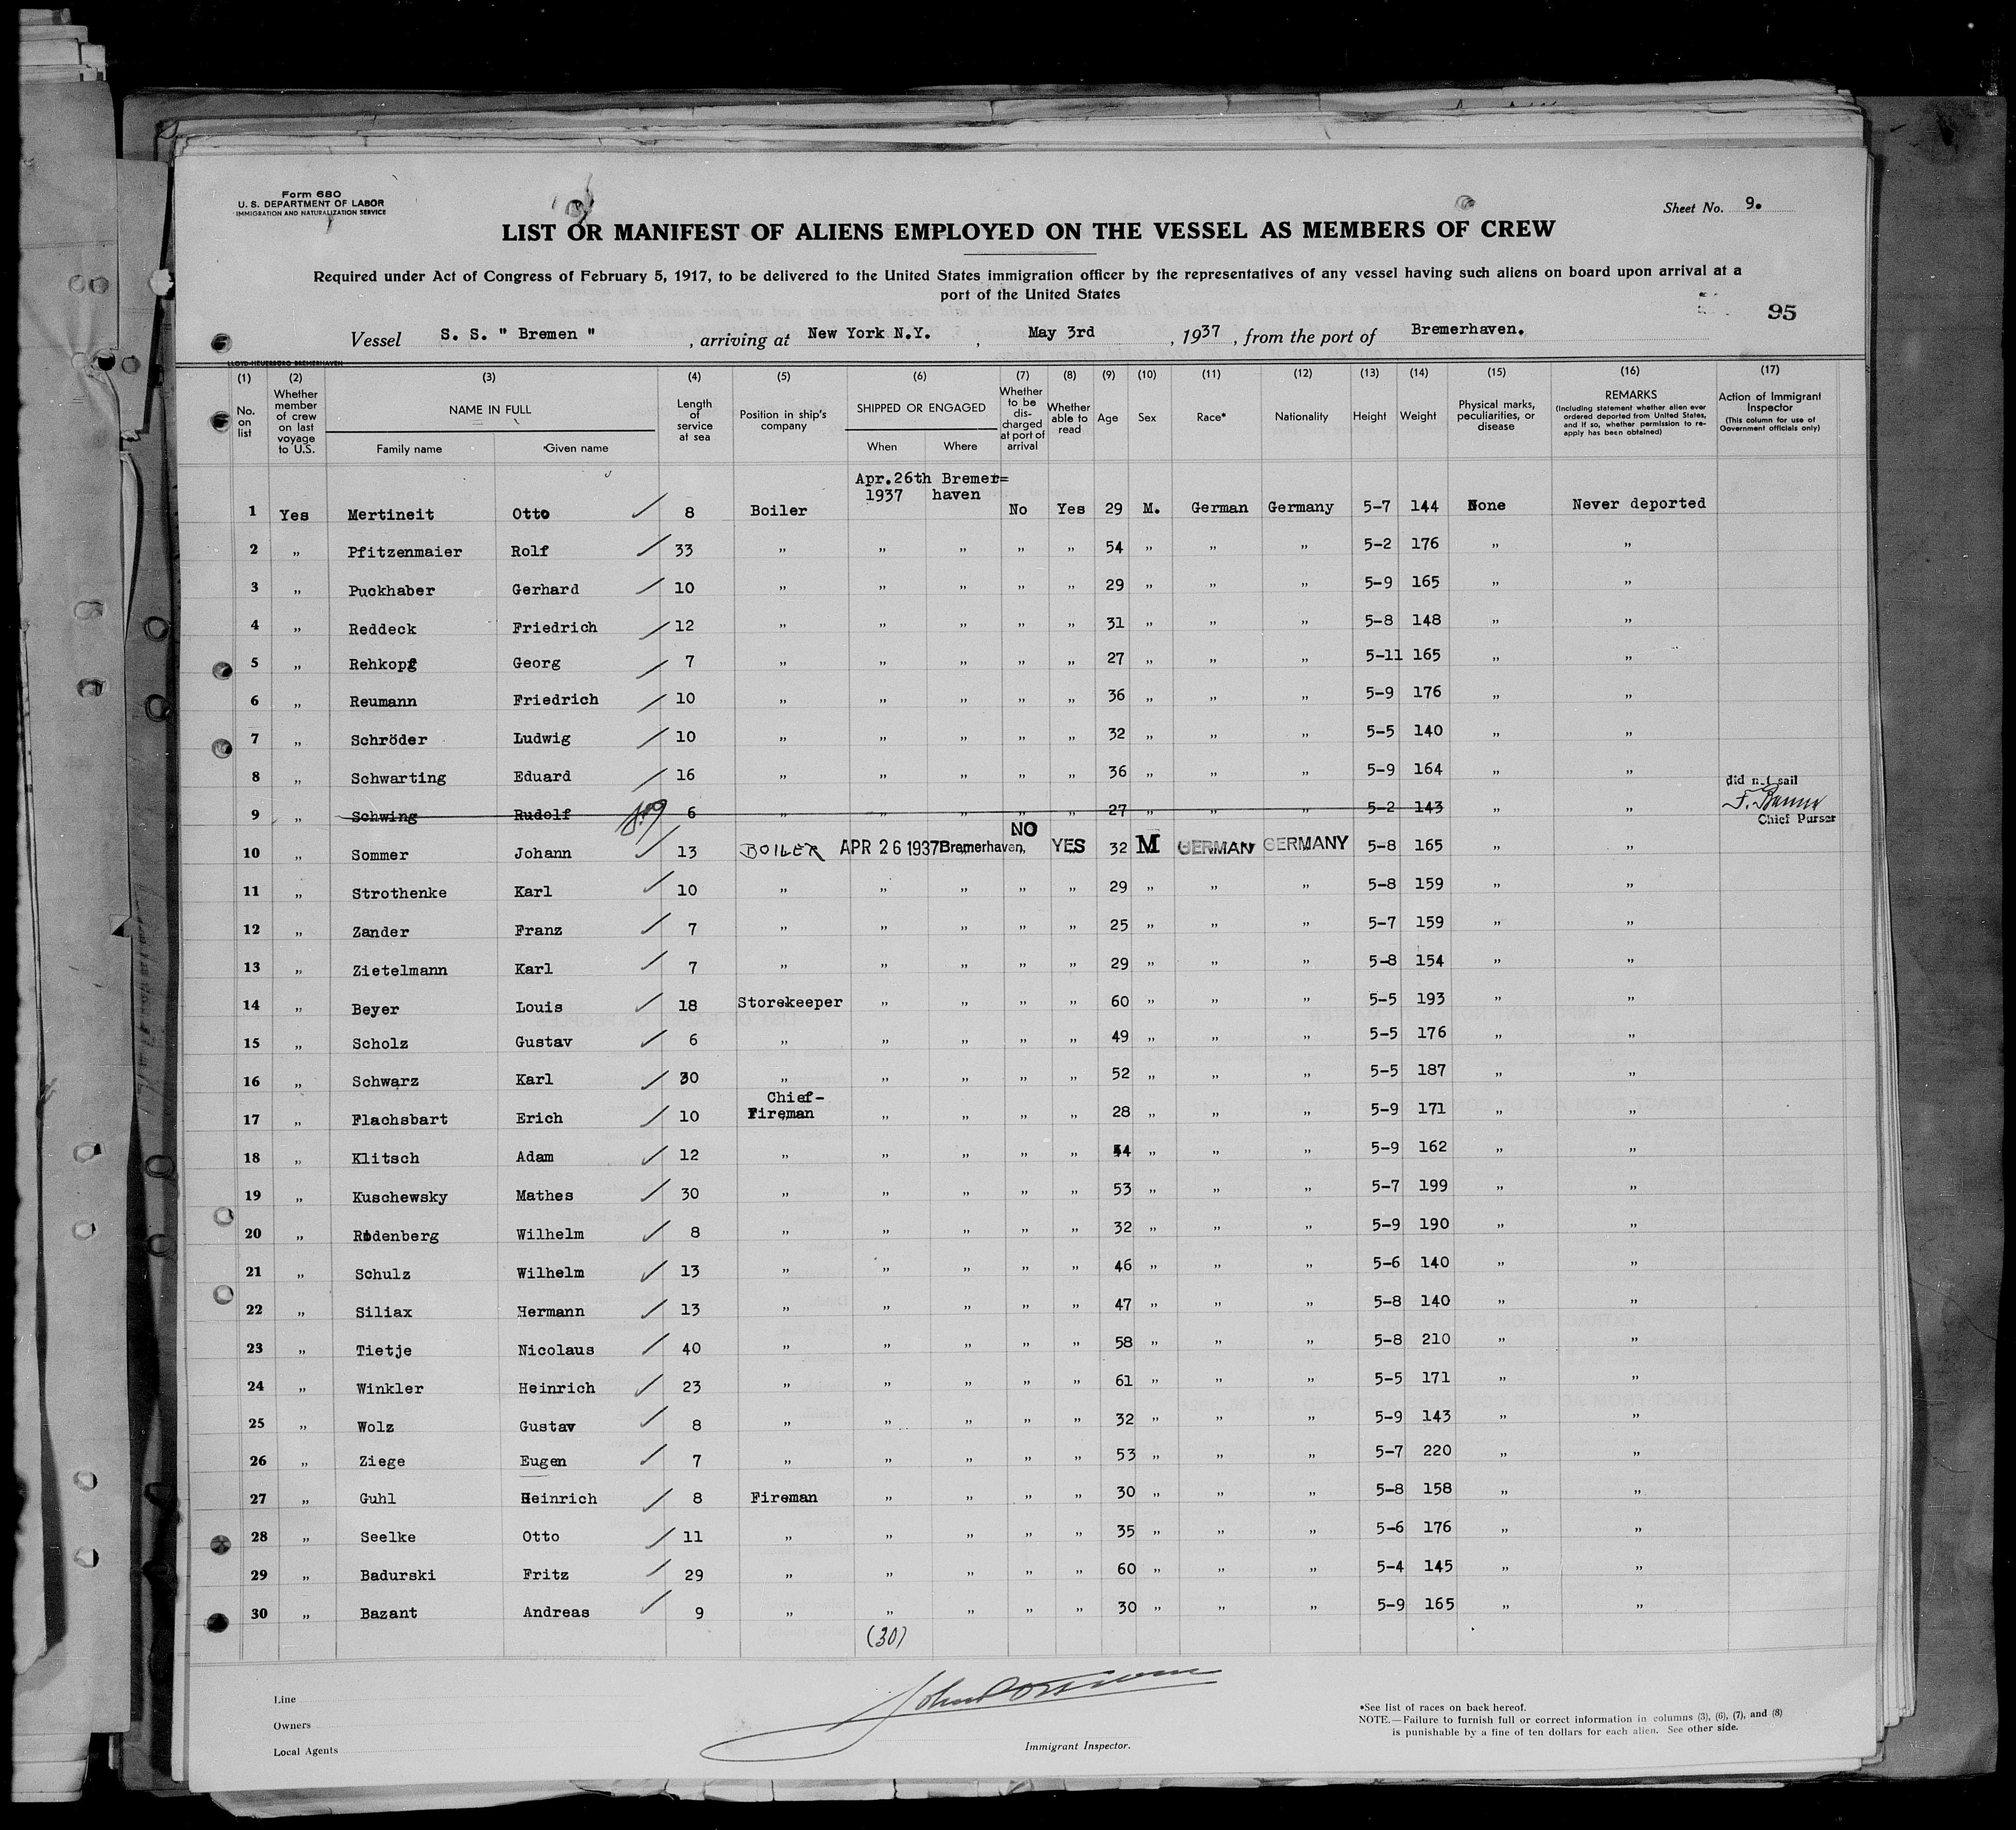 Form 680
U. S. DEPARTMENT OF LABOR
IMMIGRATION AND NATURALIZATION SERVICE
Sheet No. 9.
LIST OR MANIFEST OF ALIENS EMPLOYED ON THE VESSEL AS MEMBERS OF CREW
Required under Act of Congress of February 5, 1917, to be delivered to the United States immigration officer by the representatives of any vessel having such aliens on board upon arrival at a
port of the United States
95
Vessel S. S. " Bremen " , arriving at New York N.Y. , May 3rd , 1937 , from the port of Bremerhaven.
LLOYD-HEUERBÜRO BREMERHAVEN
(1) (2) (3) (4) (5) (6) (7) (8) (9) (10) (11) (12) (13) (14) (15) (16) (17)
No. on list
Whether member of crew on last voyage to U.S.
NAME IN FULL
Family name Given name
Length of service at sea
Position in ship's company
SHIPPED OR ENGAGED
When Where
Whether to be discharged at port of arrival
Whether able to read
Age
Sex
Race*
Nationality
Height
Weight
Physical marks, peculiarities, or disease
REMARKS
(Including statement whether alien ever ordered deported from United States, and if so, whether permission to re-apply has been obtained)
Action of Immigrant Inspector
(This column for use of Government officials only)
Apr.26th Bremer=
1937 haven
1 Yes Mertineit Otto 8 Boiler No Yes 29 M. German Germany 5-7 144 None Never deported
2 " Pfitzenmaier Rolf 33 " " " " " 54 " " " 5-2 176 " "
3 " Puckhaber Gerhard 10 " " " " " 29 " " " 5-9 165 " "
4 " Reddeck Friedrich 12 " " " " " 31 " " " 5-8 148 " "
5 " Rehkopf Georg 7 " " " " " 27 " " " 5-11 165 " "
6 " Reumann Friedrich 10 " " " " " 36 " " " 5-9 176 " "
7 " Schröder Ludwig 10 " " " " " 32 " " " 5-5 140 " "
8 " Schwarting Eduard 16 " " " " " 36 " " " 5-9 164 " "
did not sail
9 " Schwing Rudolf 6 " " " " " 27 " " " 5-2 143 " "
Chief Purser
10 " Sommer Johann 13 BOILER APR 26 1937 Bremerhaven, NO YES 32 M GERMAN GERMANY 5-8 165 " "
11 " Strothenke Karl 10 " " " " " 29 " " " 5-8 159 " "
12 " Zander Franz 7 " " " " " 25 " " " 5-7 159 " "
13 " Zietelmann Karl 7 " " " " " 29 " " " 5-8 154 " "
14 " Beyer Louis 18 Storekeeper " " " " 60 " " " 5-5 193 " "
15 " Scholz Gustav 6 " " " " " 49 " " " 5-5 176 " "
16 " Schwarz Karl 30 " " " " " 52 " " " 5-5 187 " "
Chief-
17 " Flachsbart Erich 10 Fireman " " " " 28 " " " 5-9 171 " "
18 " Klitsch Adam 12 " " " " " 54 " " " 5-9 162 " "
19 " Kuschewsky Mathes 30 " " " " " 53 " " " 5-7 199 " "
20 " Rodenberg Wilhelm 8 " " " " " 32 " " " 5-9 190 " "
21 " Schulz Wilhelm 13 " " " " " 46 " " " 5-6 140 " "
22 " Siliax Hermann 13 " " " " " 47 " " " 5-8 140 " "
23 " Tietje Nicolaus 40 " " " " " 58 " " " 5-8 210 " "
24 " Winkler Heinrich 23 " " " " " 61 " " " 5-5 171 " "
25 " Wolz Gustav 8 " " " " " 32 " " " 5-9 143 " "
26 " Ziege Eugen 7 " " " " " 53 " " " 5-7 220 " "
27 " Guhl Heinrich 8 Fireman " " " " 30 " " " 5-8 158 " "
28 " Seelke Otto 11 " " " " " 35 " " " 5-6 176 " "
29 " Badurski Fritz 29 " " " " " 60 " " " 5-4 145 " "
30 " Bazant Andreas 9 " " " " " 30 " " " 5-9 165 " "
(30)
Line
Owners
Local Agents
Immigrant Inspector.
*See list of races on back hereof.
NOTE.—Failure to furnish full or correct information in columns (3), (6), (7), and (8)
is punishable by a fine of ten dollars for each alien. See other side.